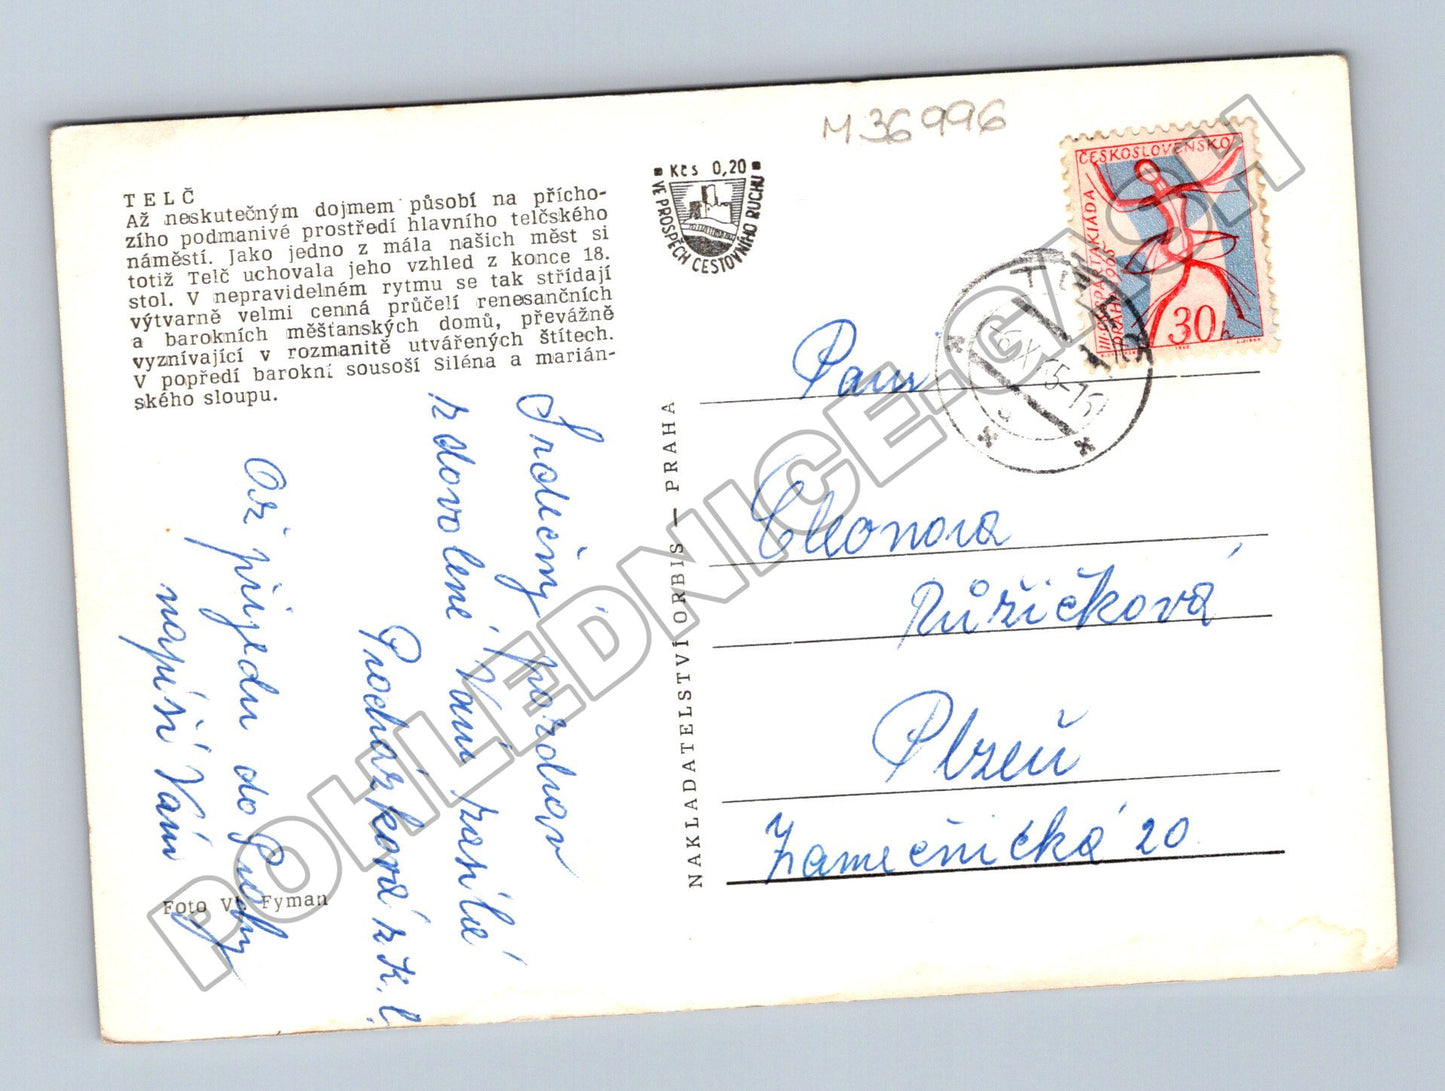 M 36 996
TELČ
Až neskutečným dojmem působí na přícho-
zího podmanivé prostředí hlavního telčského
náměstí. Jako jedno z mála našich měst si
totiž Telč uchovala jeho vzhled z konce 18.
stol. V nepravidelném rytmu se tak střídají
výtvarně velmi cenná průčelí renesančních
a barokních měšťanských domů, převážně
vyznívající v rozmanitě utvářených štítech.
V popředí barokní sousoší Siléna a marián-
ského sloupu.
Srdečný pozdrav
z dovolené Vám zasílá
Procházková z K. l.
Až přijedu do Prahy
napíši Vám
Foto Vl. Fyman
Kčs 0,20
VE PROSPĚCH CESTOVNÍHO RUCHU
NAKLADATELSTVÍ ORBIS — PRAHA
ČESKOSLOVENSKO
III. CELOSTÁTNÍ SPARTAKIÁDA
PRAHA 1965
30 h
TELČ
Paní
Eleonora
Růžičková
Plzeň
Zámečnická 20
POHLEDNICE-GASH